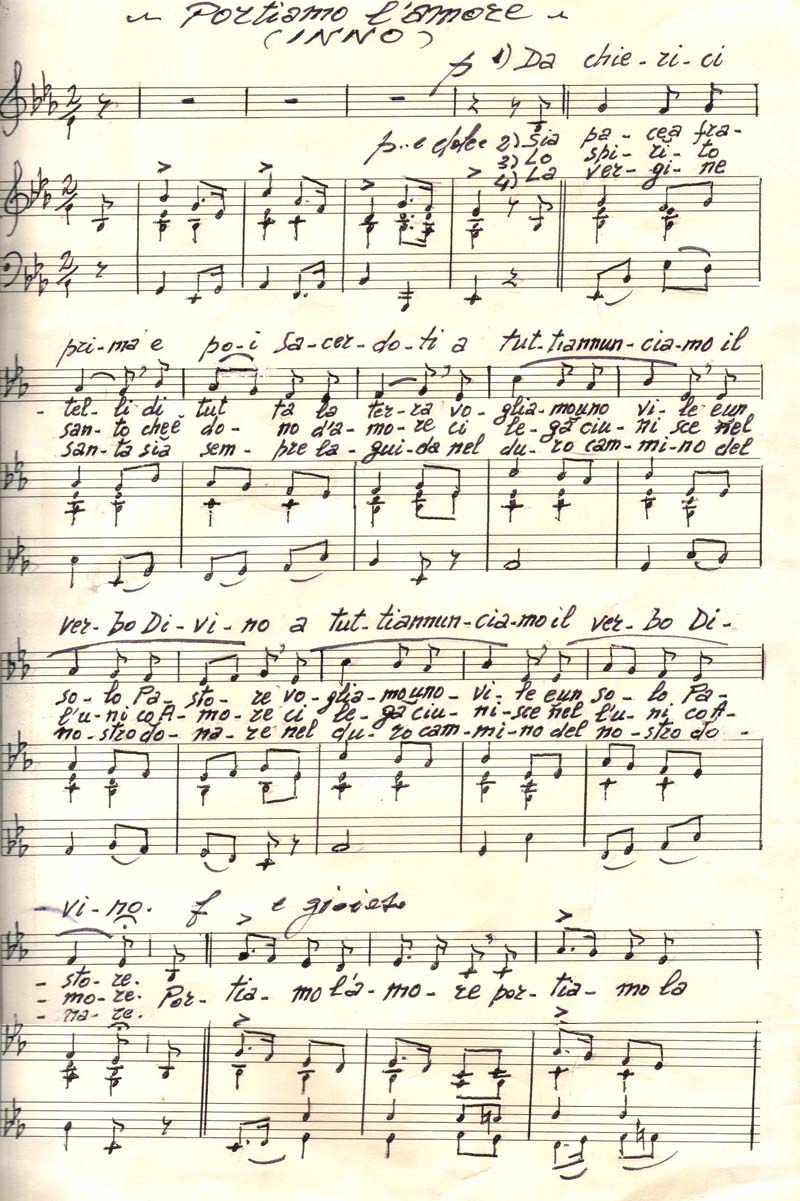 Portiamo l'amore
(INNO)
p 1) Da chie-ri-ci
p.. e dolce 2) Sia pa-cea fra-
3) Lo spi-ri-to
4) La ver-gi-ne
pri-ma e po-i sa-cer-do-ti a tut-tiannun-cia-mo il
-tel-li di tut ta la ter-ra vo-glia-mouno vi-le eun
san-to cheè do-no d'a-mo-re ci le-ga ciu-ni sce nel
san-ta sia sem-pre la-gui-da nel du-ro cam-mi-no del
ver-bo Di-vi-no a tut-tiannun-cia-mo il ver-bo Di-
so-lo Pa-sto-re vo-glia-mouno-vi-le eun so-lo Pa-
l'u-ni co A-mo-re ci le-ga ciu-ni-sce nel l'u-ni co A-
no-stro do-na-re nel du-ro cam-mi-no del no-stro do-
-vi-no. f e gioioso
-sto-re.
-mo-re. Por-tia-mo l'a-mo-re por-tia-mo la
-na-re.